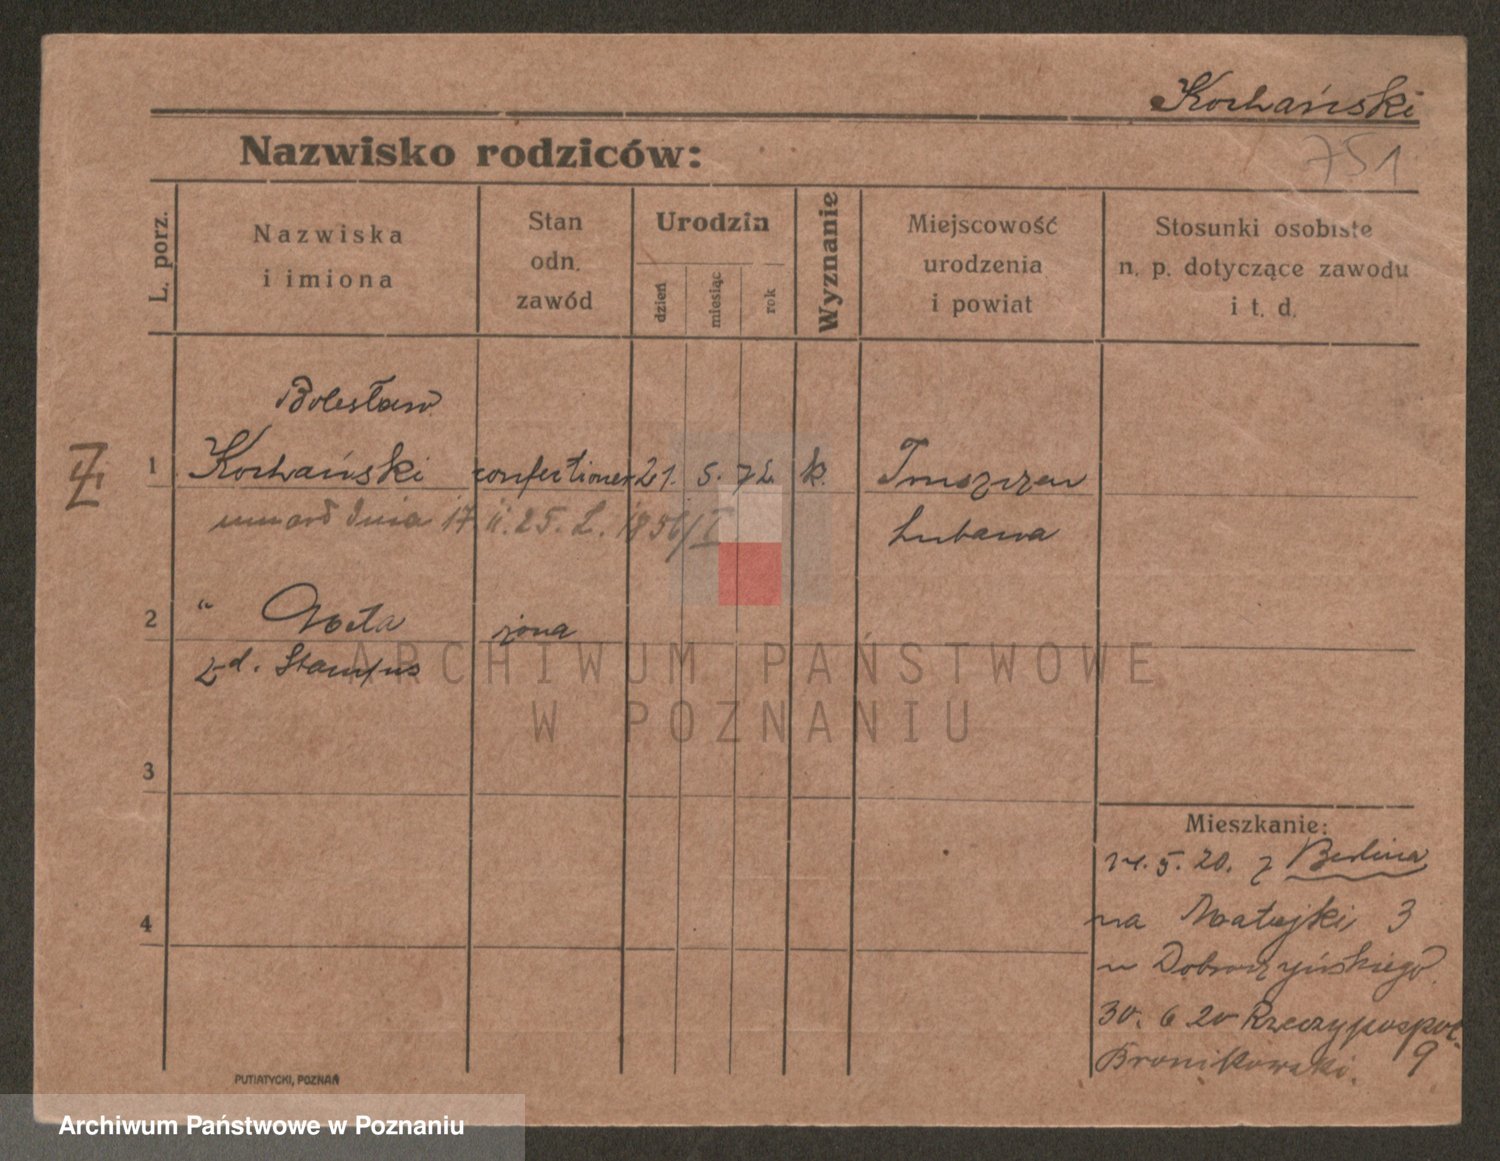 Kochański
751
Nazwisko rodziców:
L. porz.
Nazwiska
i imiona
Stan
odn.
zawód
Urodzin
dzień
miesiąc
rok
Wyznanie
Miejscowość
urodzenia
i powiat
Stosunki osobiste
n. p. dotyczące zawodu
i t. d.
Bolesław
Ż
1 Kochański confectioner 21. 5. 72. k. Truszczew
umarł dnia 17. II. 25. L. 1856/I
Lubawa
2 " Meta żona
zd. Stampus
ARCHIWUM PAŃSTWOWE
W POZNANIU
3
4
Mieszkanie:
14. 5. 20. z Berlina
na Matejki 3
u Dobroczyńskiego
30. 6 20 Rzeczypospol.
Bronikowski. 9
PUTIATYCKI, POZNAŃ
Archiwum Państwowe w Poznaniu